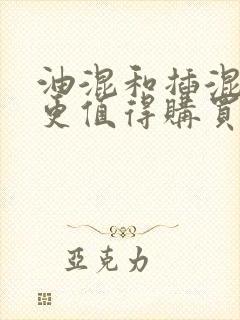 油混和插混
更值得購買
亞克力